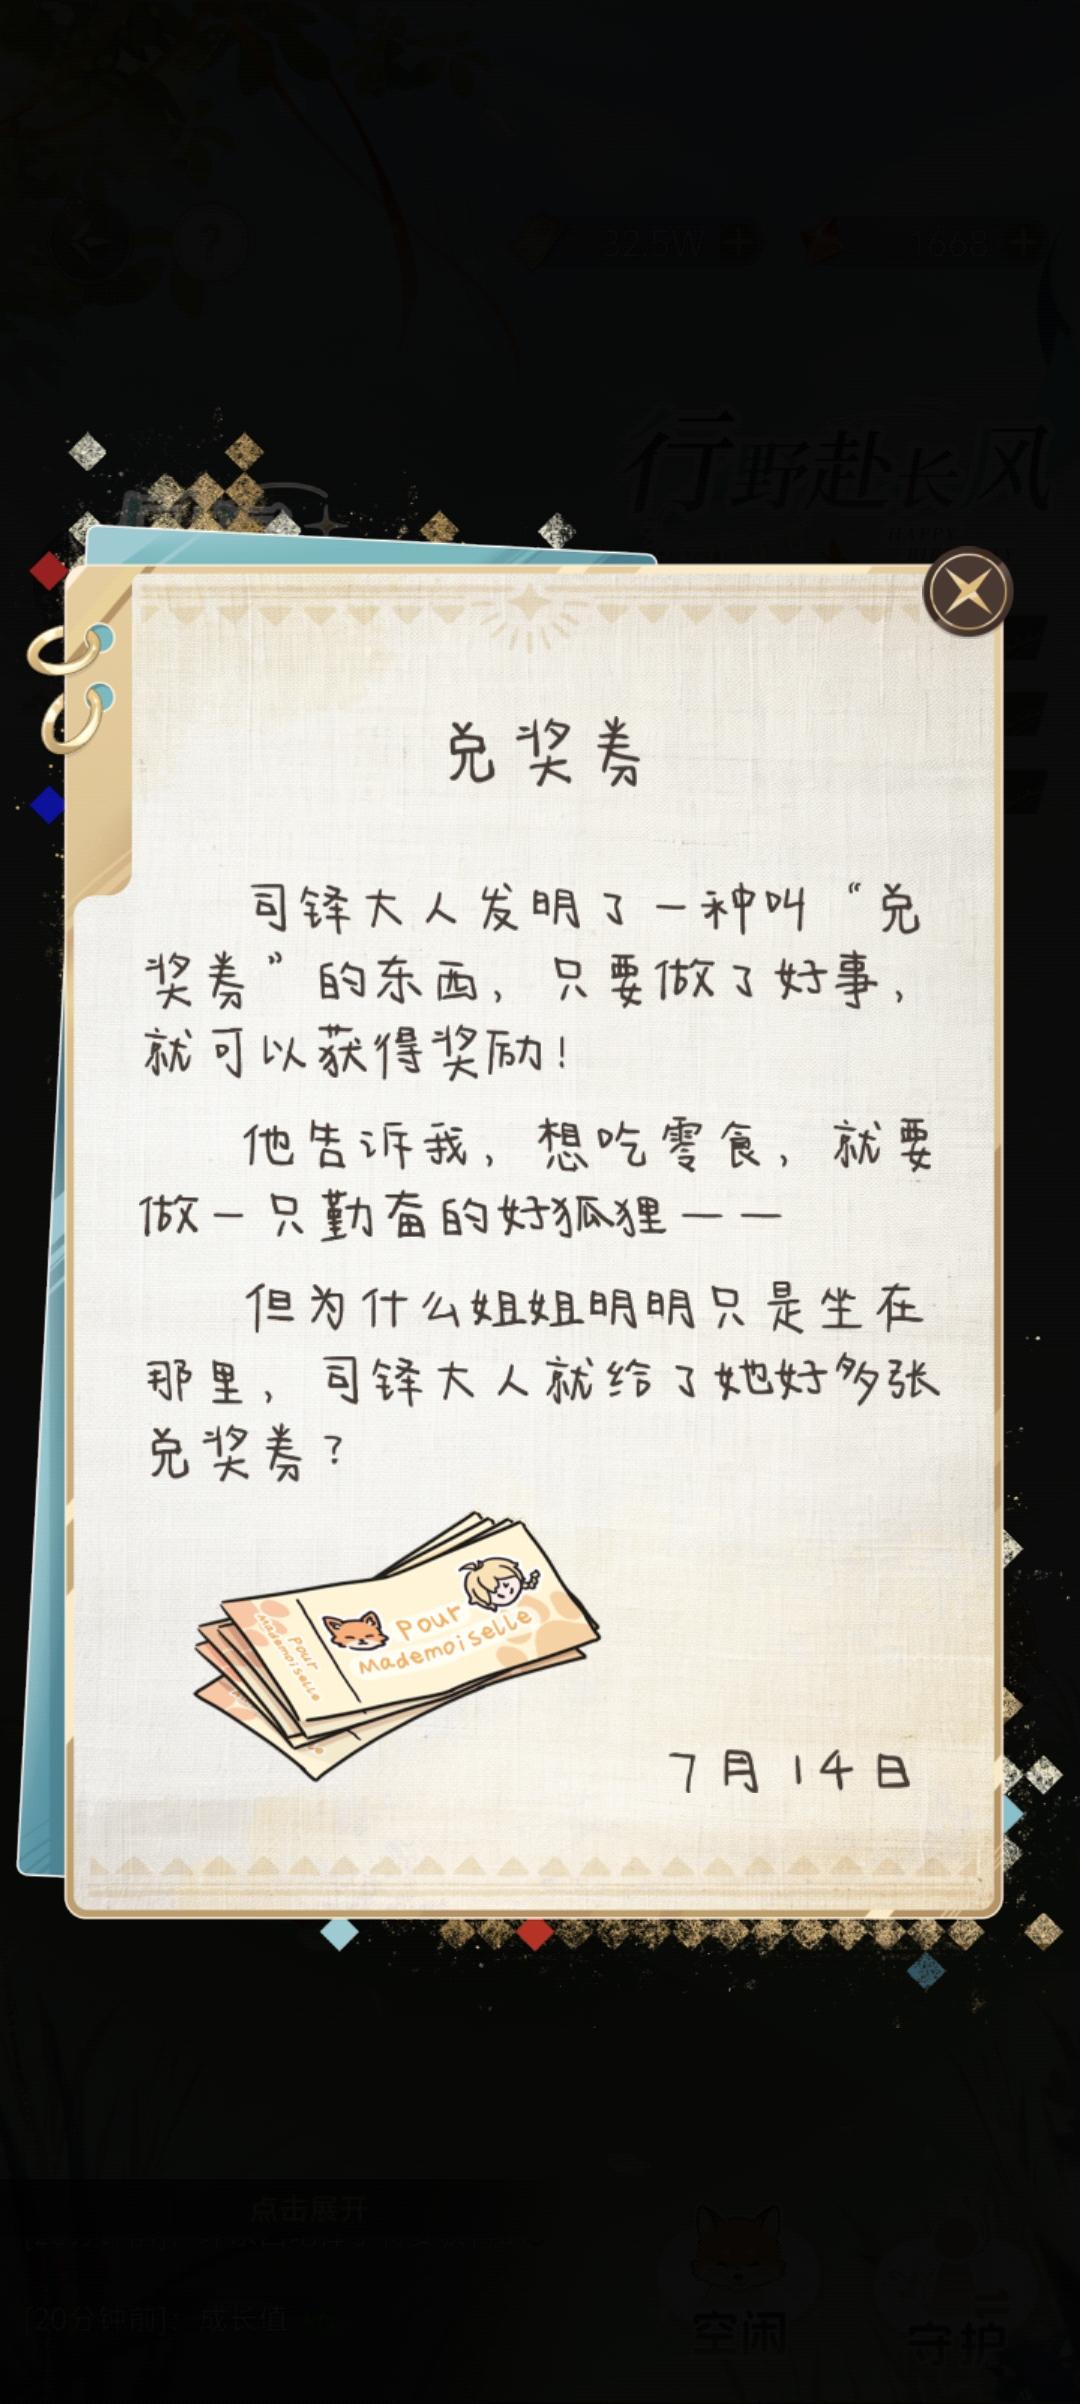 32.5W
1668
行野赴长风
HAPPY
兑奖券
司铎大人发明了一种叫“兑
奖券”的东西，只要做了好事，
就可以获得奖励！
他告诉我，想吃零食，就要
做一只勤奋的好狐狸——
但为什么姐姐明明只是坐在
那里，司铎大人就给了她好多张
兑奖券？
Pour
Mademoiselle
Pour
Mademoiselle
7月14日
点击展开
[20分钟前]：成长值
空闲
守护